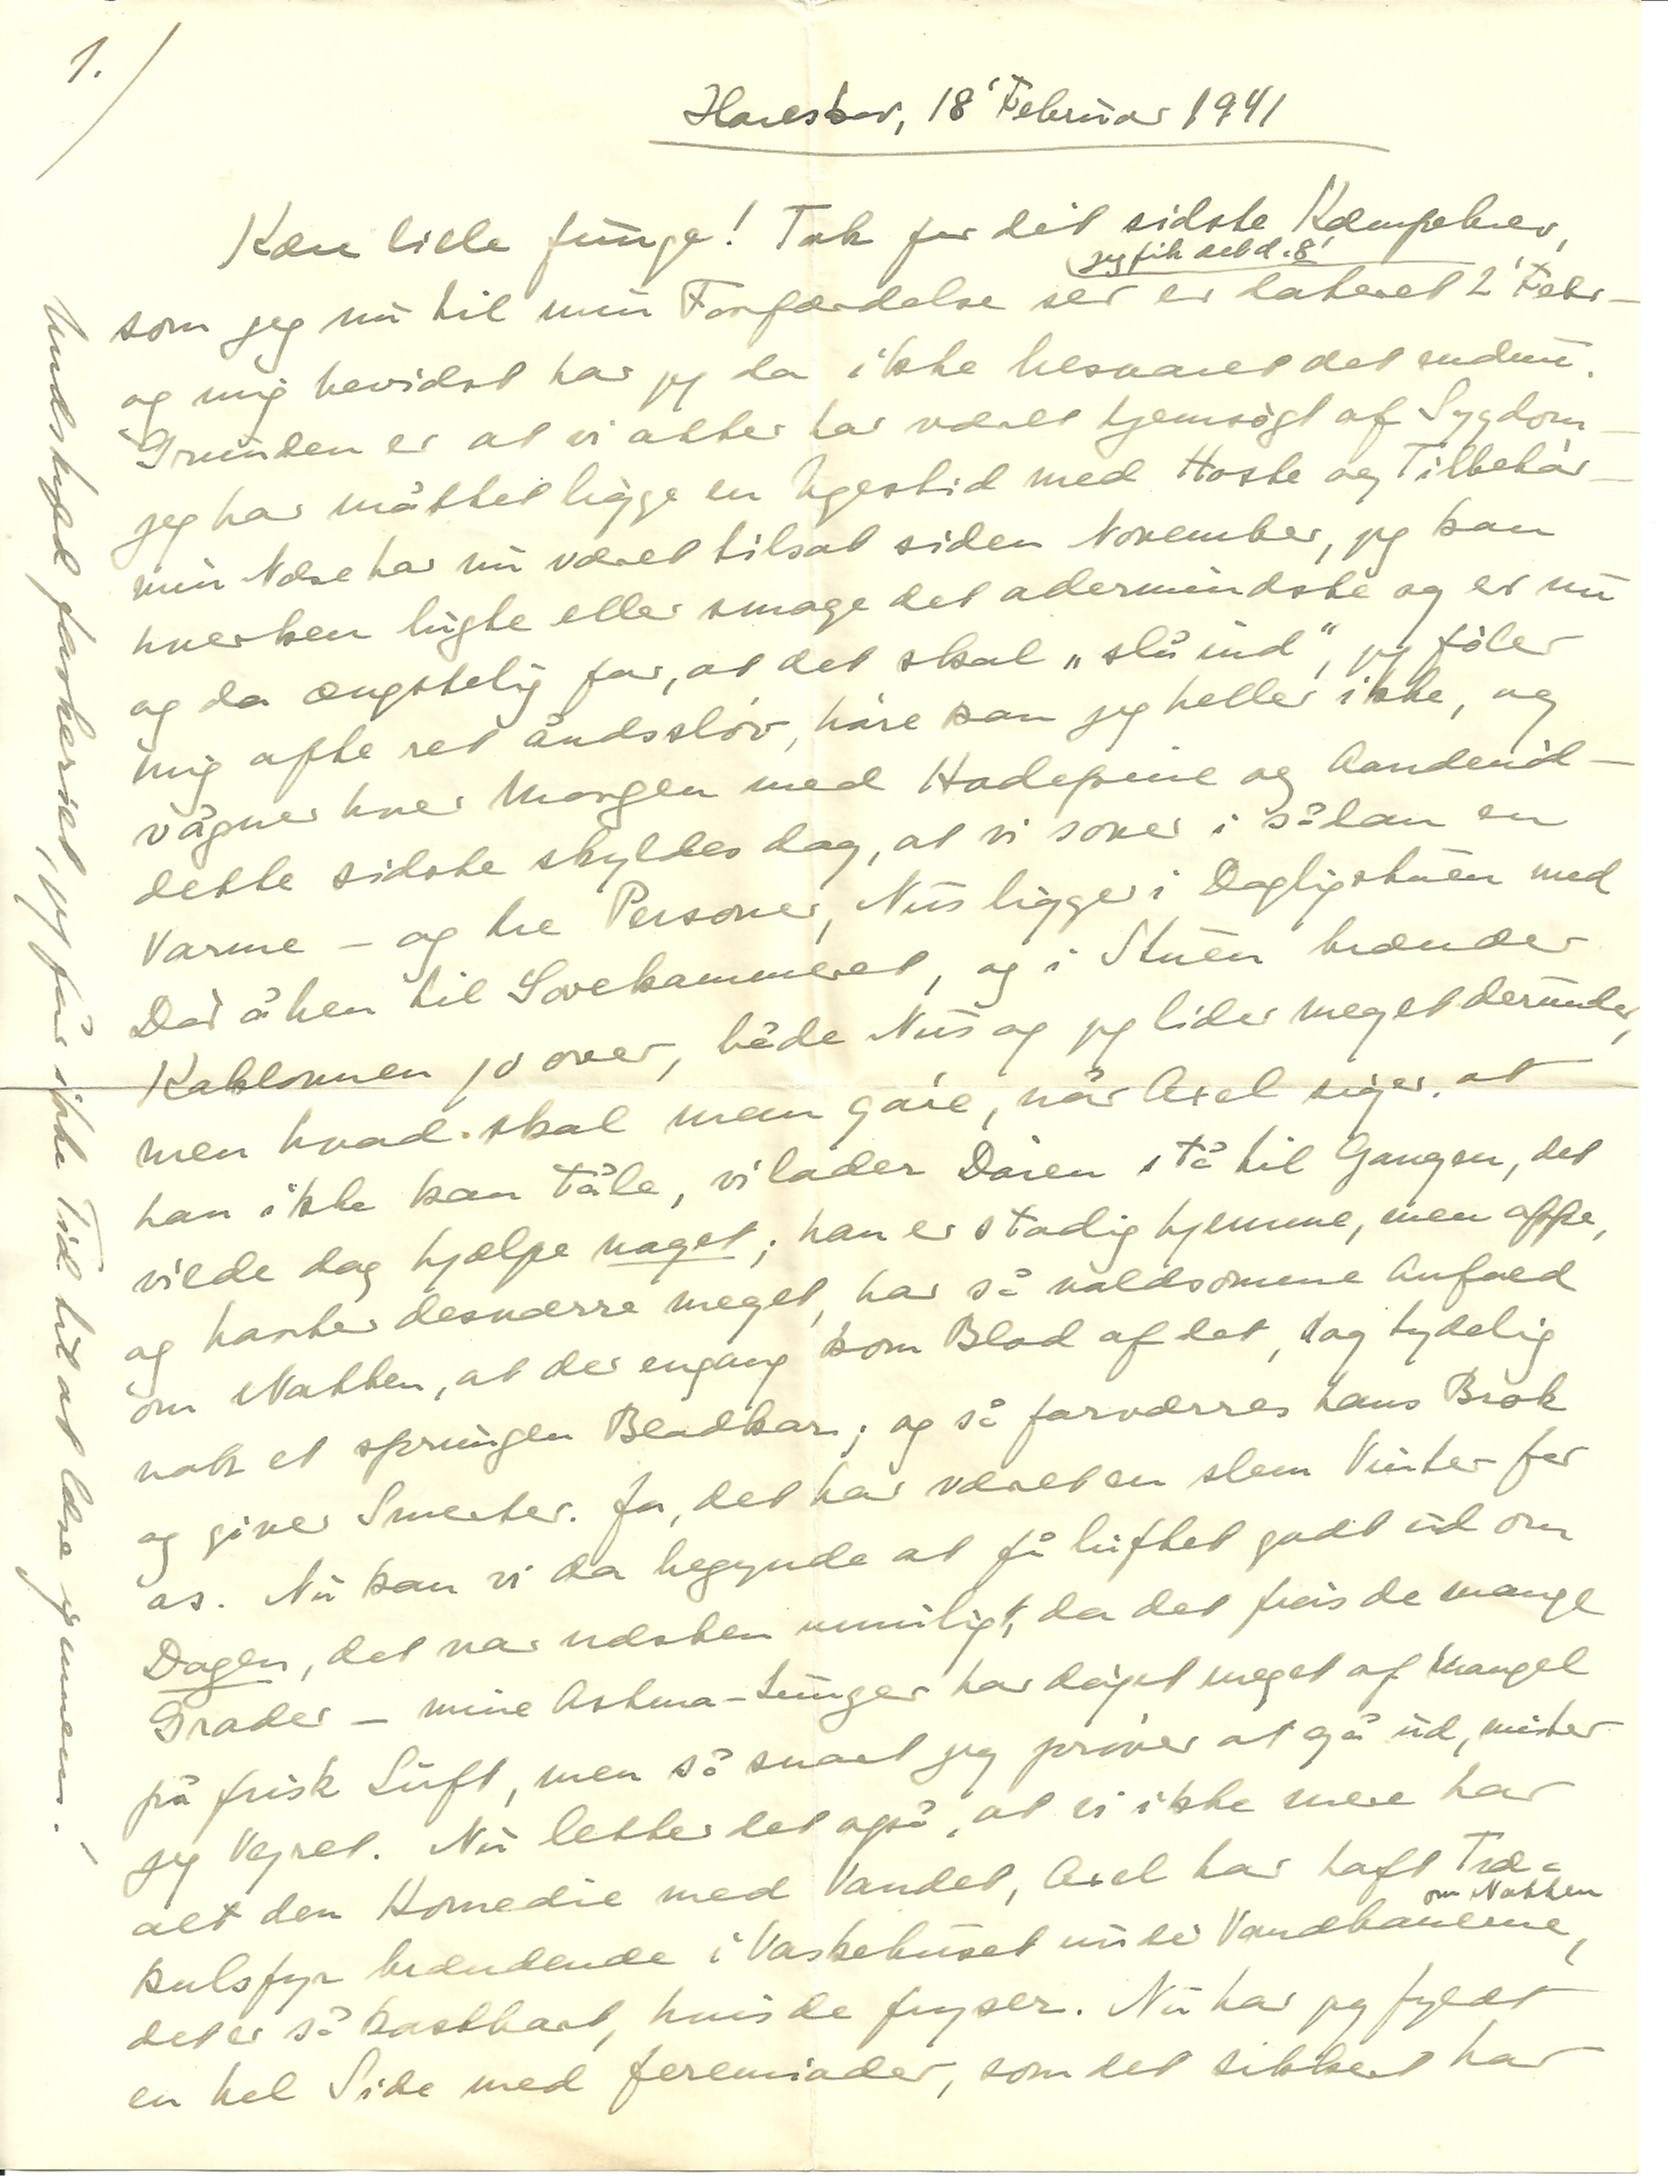 1.
Hareskov, 18' Februar 1941
Kære lille Junge! Tak for dit sidste Kæmpebrev,
(jeg fik det d. 8'
som jeg nu til min Forfærdelse ser er dateret 2' Febr –
og mig bevidst har jeg da ikke besvaret det endnu.
Grunden er at vi atter har været hjemsøgt af Sygdom –
jeg har måttet ligge en Ugestid med Hoste og Tilbehør –
min Næse har nu været tilsat siden November, jeg kan
hverken lugte eller smage det allermindste og er nu
og da ængstelig for, at det skal „slå ind", jeg føler
mig ofte ret åndssløv, høre kan jeg heller ikke, og
vågner hver Morgen med Hodepine og Aandenød –
dette sidste skyldes dog, at vi sover i sådan en
Varme – og tre Personer, Nus ligger i Dagligstuen med
Dør åben til Sovekammeret, og i Stuen brænder
Kakkelovnen jo over, både Nus og jeg lider meget derunder,
men hvad skal man gøre, når Axel siger, at
han ikke kan tåle, vi lader Døren stå til Gangen, det
vilde dog hjælpe noget; han er stadig hjemme, men oppe,
og hoster desværre meget, har så voldsomme Anfald
om Natten, at der engang kom Blod af det, dog tydelig
nok et sprungen Blodkar; og så forværres hans Brok
og giver Smerter. Ja, det har været en slem Vinter for
os. Nu kan vi da begynde at få luftet godt ud om
Dagen, det var næsten umuligt, da det frøs de mange
Grader – mine Astma-Lunger har døjet meget af Mangel
på frisk Luft, men så snart jeg prøver at gå ud, mister
jeg Vejret. Nu letter det også, at vi ikke mere har
alt den Komedie med Vandet, Axel har haft Træ-
om Natten
kulsfyr brændende i Vaskehuset under Vandhanerne,
det er så kostbart, hvis de fryser. Nu har jeg fyldt
en hel Side med Jeremiader, som det sikkert har
Undskyld Jaskeriet, jeg får ikke Tid til at læse igennem.